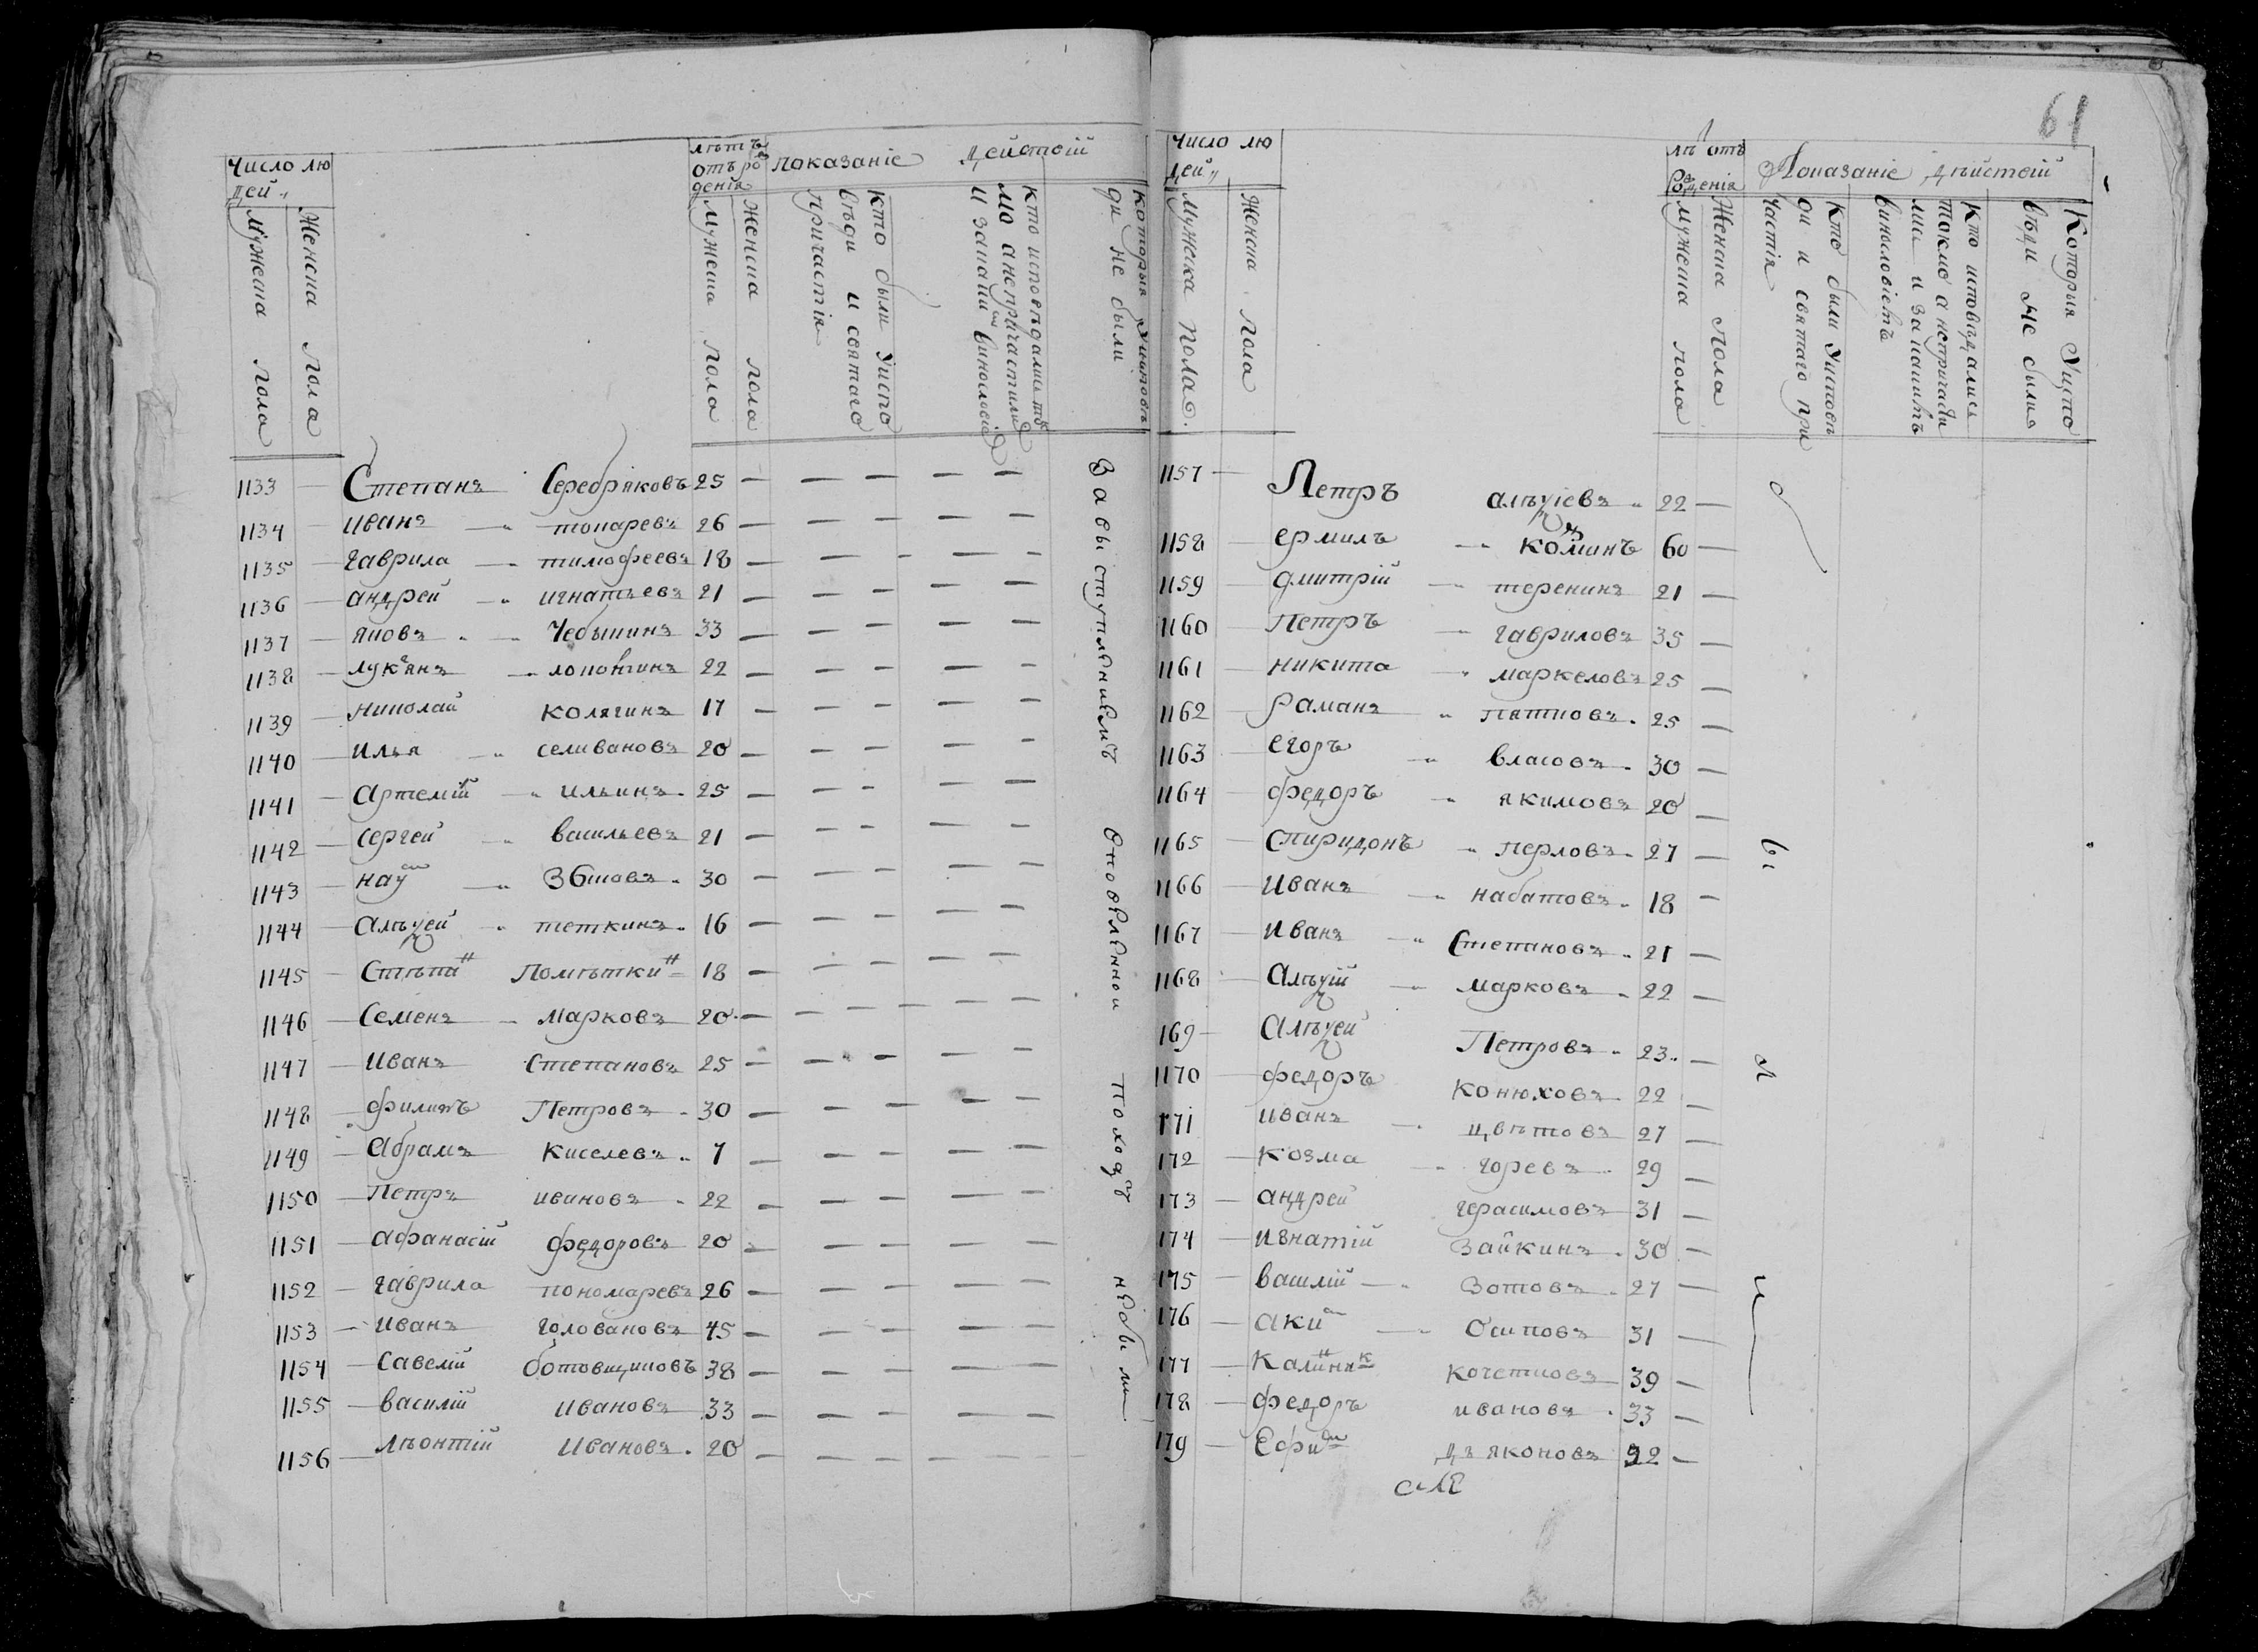 Число лю
дей
мужеска пола
женска пола
лѣтъ
отъ ро
денія
мужеска пола
женска пола
показаніе дѣйствій
кто были у испо
вѣди и святаго
причастія
кто исповѣдались ток
мо а непричастилис
и за каким винословіе
которыя у исповѣ
ди не были
1133 — Степанъ Серебряковъ 25
1134 — иванъ токаревъ 26
1135 — гаврила тимофеевъ 18
1136 — андрей игнатьевъ 21
1137 — яковъ Чебышинъ 33
1138 — лукʼянъ 22
1139 — николай колягинъ 17
1140 — илья селивановъ 20
1141 — Артемій ильинъ 25
1142 — сергей васильевъ 21
1143 — наум 30
1144 — Алѣѯей теткинъ 16
1145 — Стѣпан Помѣткин 18
1146 — Семенъ марковъ 20
1147 — иванъ Степановъ 25
1148 — филипъ Петровъ 30
1149 — Абрамъ Киселевъ 7
1150 — Петръ ивановъ 22
1151 — афанасій федоровъ 20
1152 — гаврила пономаревъ 26
1153 — иванъ головановъ 45
1154 — Савелій ботовщиковъ 38
1155 — василій ивановъ 33
1156 — лѣонтій ивановъ 20
За выступлениемъ оноѳленной походъ небыли
61
Число лю
дей
мужска пола
женска пола
лѣ отъ
рожденія
мужеска пола
женска пола
Показаніе дѣйствій
Кто были у исповѣ
ди и святаго при
частія
Кто исповѣдались
токмо а непричасти
лись и за какимъ
винословіемъ
Которыя у испо
вѣди не были
1157 — Петръ алѣѯіевъ 22
1158 — ермилъ козминъ 60
1159 — дмитрій теренинъ 21
1160 — Петръ гавриловъ 35
1161 — никита маркеловъ 25
1162 — Романъ пятковъ 25
1163 — егоръ власовъ 30
1164 — федоръ якимовъ 20
1165 — Спиридонъ перловъ 27
1166 — иванъ набатовъ 18
1167 — иванъ Степановъ 21
1168 — Алѣѯій марковъ 22
169 — Алѣѯей Петровъ 23
1170 — федоръ конюховъ 22
171 иванъ цвѣтовъ 27
172 — козма горевъ 29
173 — андрей герасимовъ 31
174 — игнатій Зайкинъ 30
175 — василій Зотовъ 27
176 — аким Осиповъ 31
177 — Калинник кочетковъ 39
178 — федоръ ивановъ 33
179 — Ефим дъяконовъ 22
были